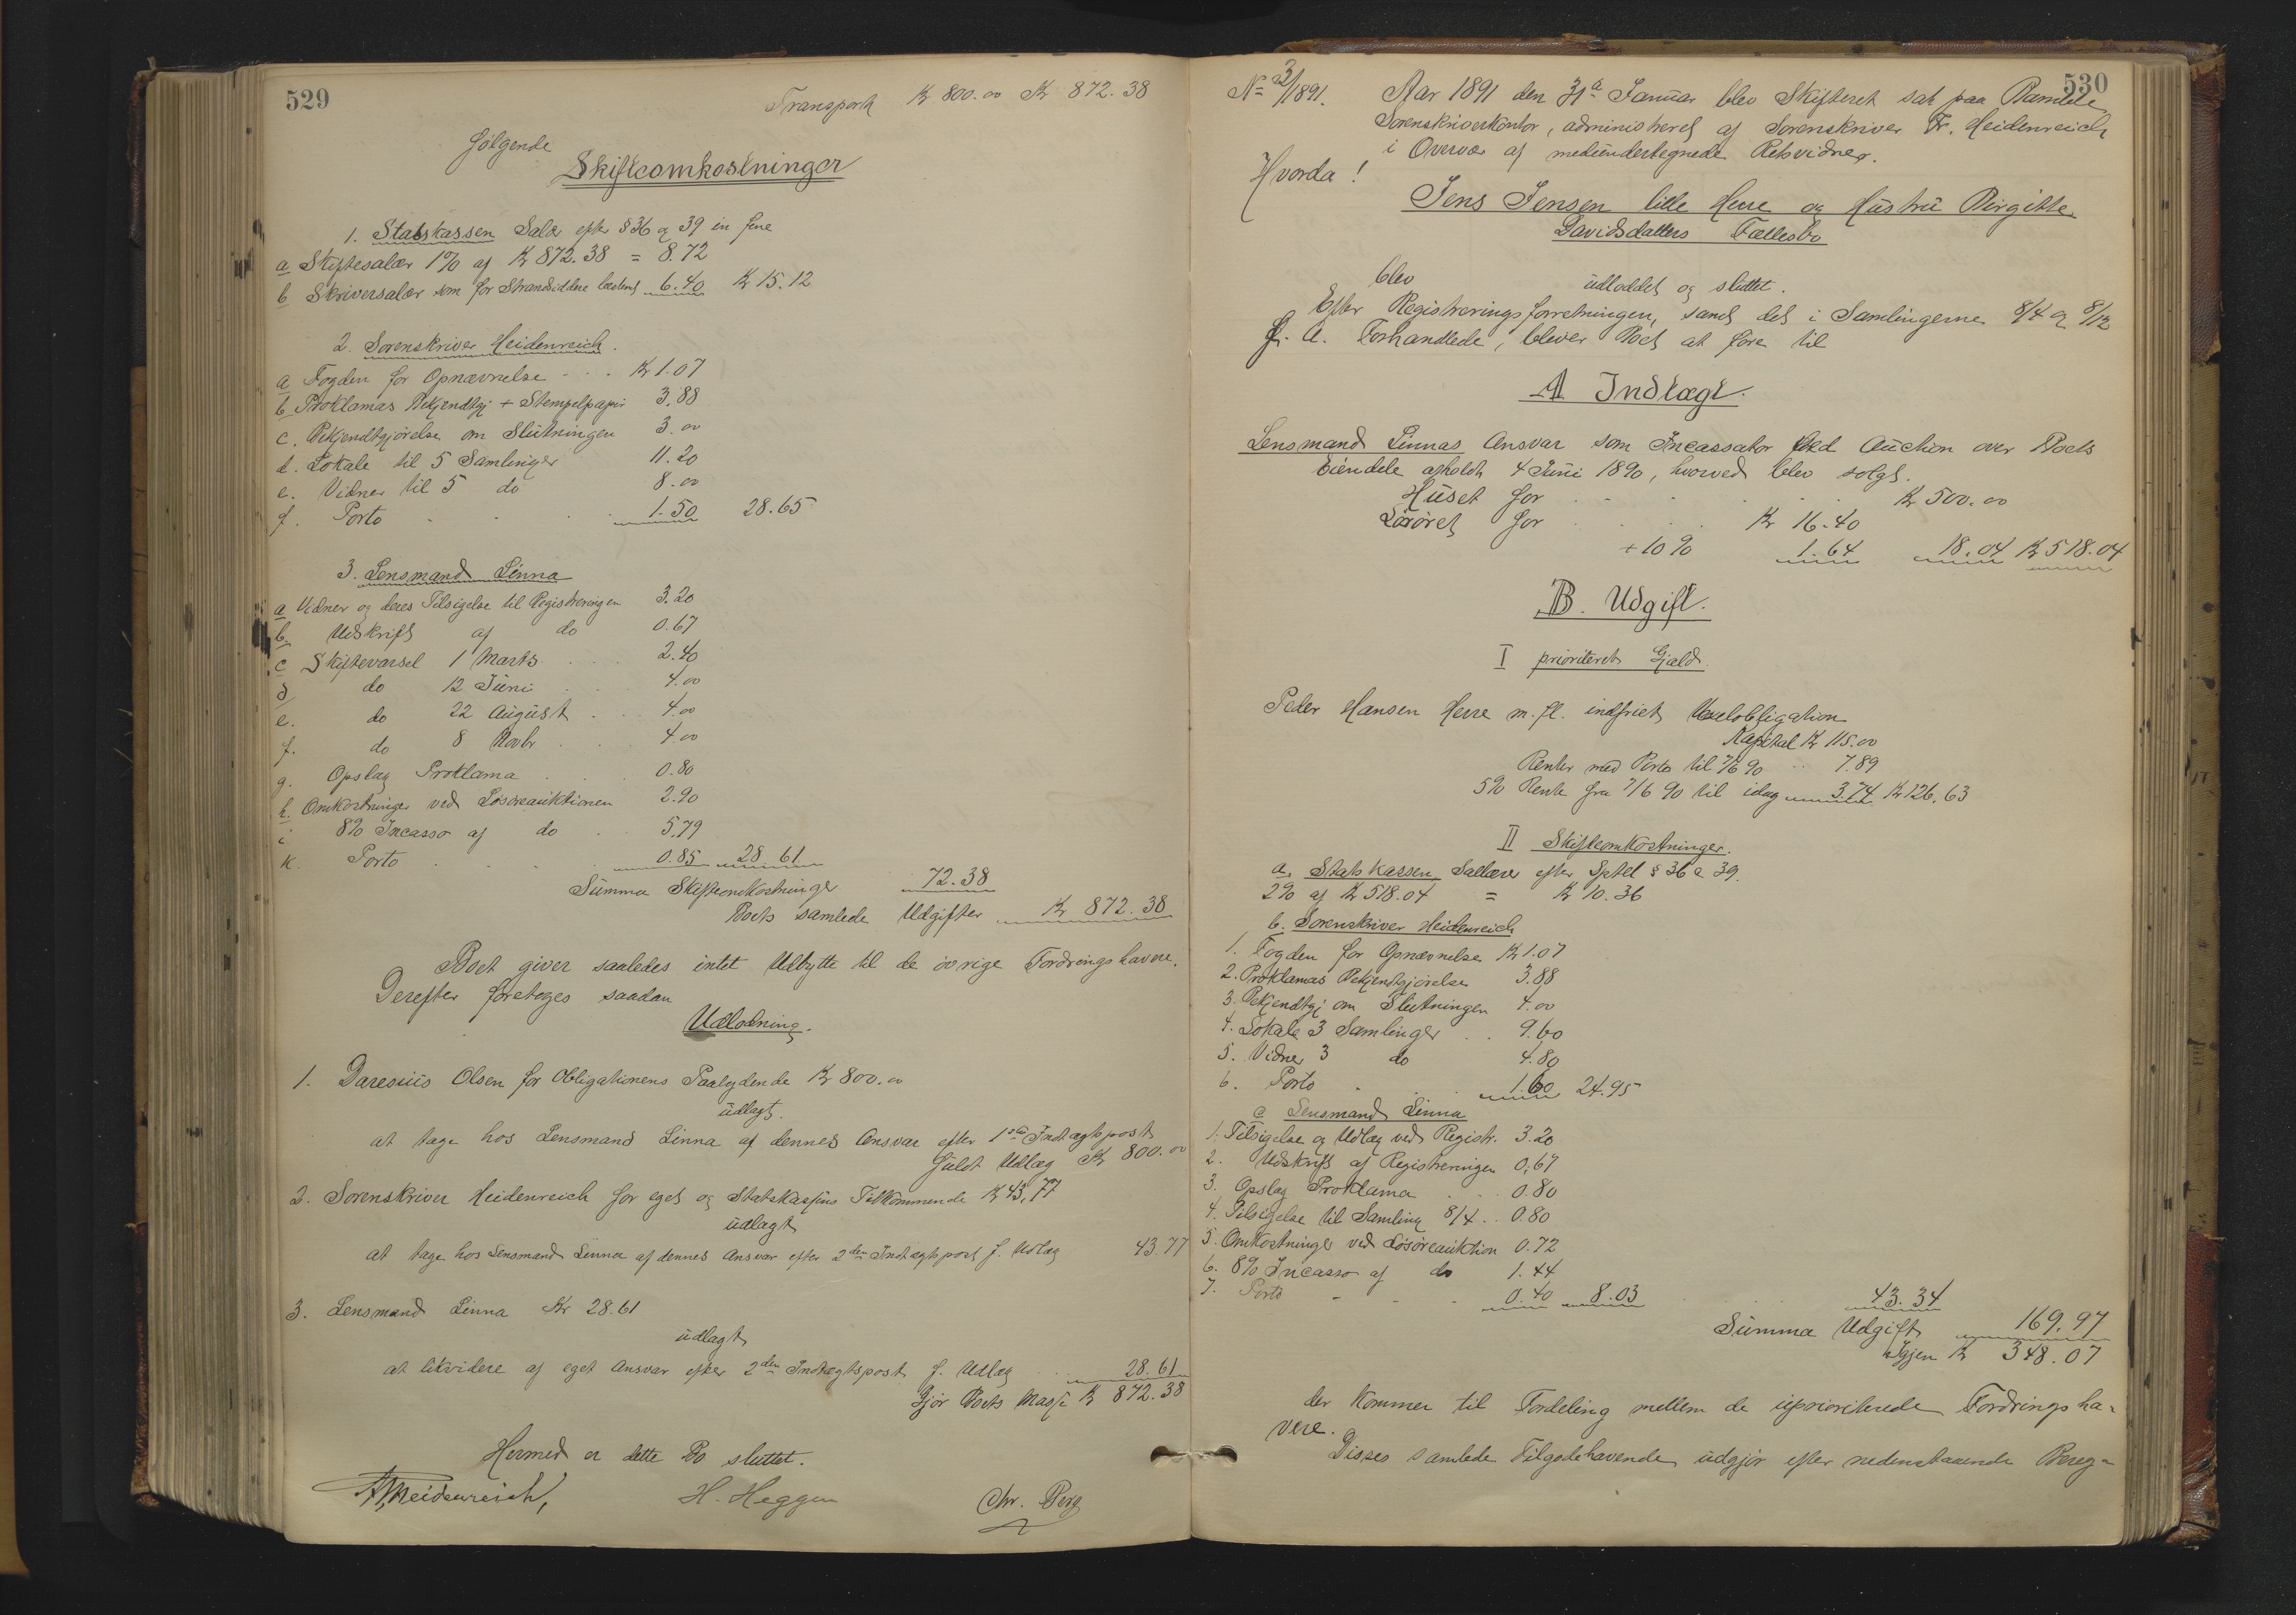 529
Transport Kr 800.00 Kr 872.38
følgende
Skifteomkostninger
1. Statskassen Salær efter § 36 og 39 in fine
a Skiftesalær 1% af Kr 872.38 = 8.72
b Skriversalær som for Strandsiddere bestemt 6.40 Kr 15.12
2. Sorenskriver Heidenreich.
a Fogden for Opnævnelse Kr 1.07
b Proklamas Bekjendtgj + Stempelpapir 3.88
c. Bekjendtgjörelse om Slutningen 3.00
d. Lokale til 5 Samlinger 11.20
e. Vidner til 5 do 8.00
f. Porto 1.50 28.65
3. Lensmand Linna
a Vidner og deres Tilsigelse til Registreringen 3.20
b. Udskrift af do 0.67
c Skiftevarsel 1 Marts 2.40
d do 12 Juni 4.00
e. do 22 August 4.00
f. do 8 Novbr 4.00
g. Opslag Proklama 0.80
h. Omkostninger ved Lösöreauktionen 2.90
i 8% Incasso af do 5.79
k. Porto 0.85 28.61
Summa Skifteomkostninger 72.38
Boets samlede Udgifter Kr 872.38
Boet giver saaledes intet Udbytte til de övrige Fordringshavere.
Derefter foretoges saadan
Udlodning.
1. Daresius Olsen for Obligationens Paalydende Kr 800.00
udlagt.
at tage hos Lensmand Linna af dennes Ansvar efter 1ste Indtægtspost
fuldt Udlæg Kr 800.00
2. Sorenskriver Heidenreich for eget og Statskassens Tilkommende Kr 43,77
udlagt
at tage hos Lensmand Linna af dennes Ansvar efter 2den Indtægtspost f. Udlæg 43.77
3. Lensmand Linna Kr 28.61
udlagt
at likvidere af eget Ansvar efter 2den Indtægtspost f. Udlæg 28.61
Gjör Boets Masse Kr 872.38
Hermed er dette Bo sluttet.
Heidenreich, H. Heggen Chr. Berg
530
No 3/1891. Aar 1891 den 31te Januar blev Skifteret sat paa Bamble
Sorenskriverkontor, administreret af Sorenskriver Fr. Heidenreich
i Overvær af medundertegnede Retsvidner.
Hvorda!
Jens Jensen lille Herre og Hustru Birgitte
Davidsdatters Fællesbo
blev udloddet og sluttet.
Efter Registreringsforretningen, samt det i Samlingerne 8/4 og 8/12
f. A. Forhandlede, bliver Boet at före til
A Indtægt.
Lensmand Linnas Ansvar som Incassator ved Auction over Boets
Eiendele afholdt 4 Juni 1890, hvorved blev solgt.
Huset for Kr 500.00
Lösöret for Kr 16.40
+ 10% 1.64 18.04 Kr 518.04
B. Udgift.
I prioriteret Gjæld.
Peder Hansen Herre m. fl. indfriet Vexelobligation
Kapital Kr 115.00
Renter med Porto til 7/6 90 7.89
5% Rente fra 7/6 90 til idag 3.74 Kr 126.63
II Skifteomkostninger.
a. Statskassen Sallær efter Sptl § 36 a 39.
2% af Kr 518.04 = Kr 10.36
b. Sorenskriver Heidenreich
1. Fogden for Opnævnelse Kr 1.07
2. Proklamas Bekjendtgjörelse 3.88
3. Bekjendtgj om Slutningen 4.00
4. Lokale 3 Samlinger 9.60
5. Vidner 3 do 4.80
6. Porto 1.60 24.95
c Lensmand Linna
1. Tilsigelse og Udlæg ved Registr. 3.20
2. Udskrift af Registreringen 0,67
3. Opslag Proklama 0.80
4. Tilsigelse til Samling 8/4 0.80
5. Omkostninger ved Lösöreauktion 0.72
6. 8% Incasso af do 1.44
7. Porto 0.40 8.03 43.34
Summa Udgift 169.97
Igjen Kr 348.07
der kommer til Fordeling mellem de uprioriterede Fordringsha-
vere.
Disses samlede Tilgodehavende udgjör efter nedenstaaende Bereg-